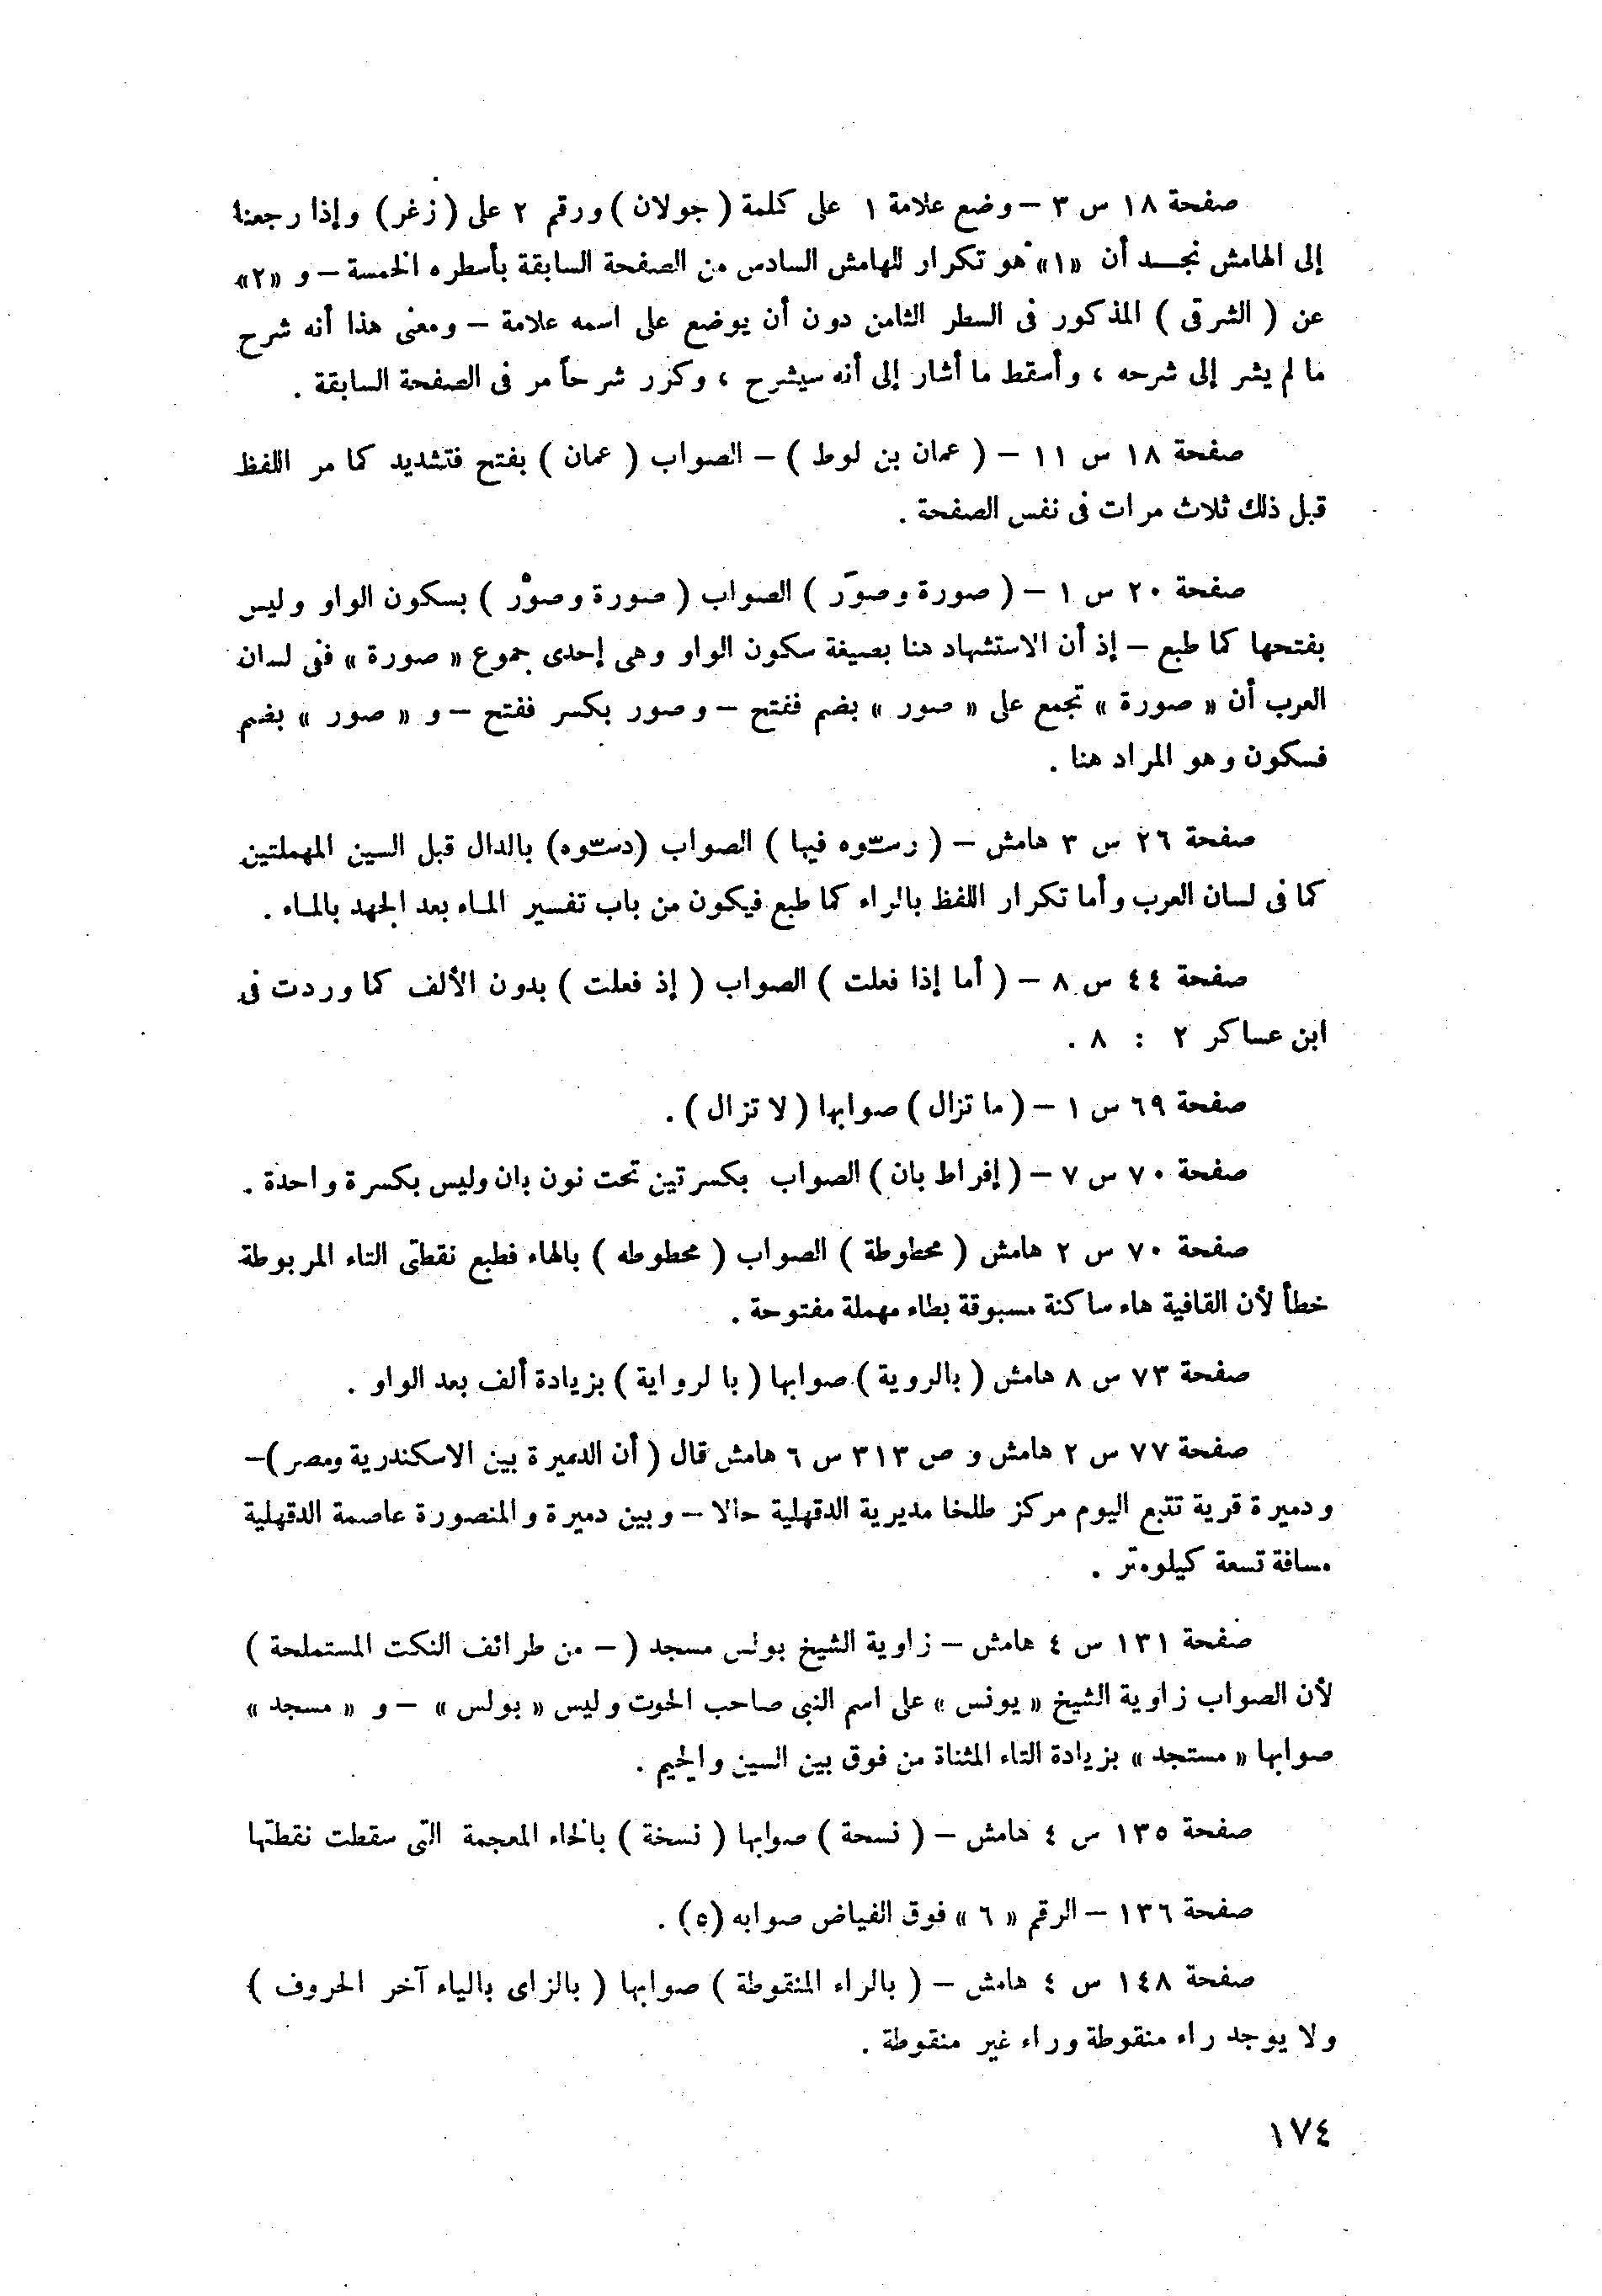 صفحة ١٨ س ٣ – وضع علامة ١ على كلمة ( جولان ) ورقم ٢ على (زغر) وإذا رجعنا
إلى الهامش نجد أن «١» هو تكرار للهامش السادس من الصفحة السابقة بأسطره الخمسة – و «٢»
عن ( الشرقى ) المذكور فى السطر الثامن دون أن يوضع على اسمه علامة – ومعنى هذا أنه شرح
ما لم يشر إلى شرحه ، وأسقط ما أشار إلى أنه سيشرح ، وكرر شرحاً مر فى الصفحة السابقة .
صفحة ١٨ س ١١ – ( عمان بن لوط ) – الصواب ( عمان ) بفتح فتشديد كما مر اللفظ
قبل ذلك ثلاث مرات فى نفس الصفحة .
صفحة ٢٠ س ١ – ( صورة وصوَر ) الصواب ( صورة وصوْر ) بسكون الواو وليس
بفتحها كما طبع – إذ أن الاستشهاد هنا بصيغة سكون الواو وهى إحدى جموع « صورة » ففى لسان
العرب أن « صورة » تجمع على « صور » بضم ففتح – وصور بكسر ففتح – و « صور » بضم
فسكون وهو المراد هنا .
صفحة ٢٦ س ٣ هامش – ( رسّوه فيها ) الصواب (دسّوه) بالدال قبل السين المهملتين
كما فى لسان العرب وأما تكرار اللفظ بالراء كما طبع فيكون من باب تفسير الماء بعد الجهد بالماء .
صفحة ٤٤ س ٨ – ( أما إذا فعلت ) الصواب ( إذ فعلت ) بدون الألف كما وردت فى
ابن عساكر ٢ : ٨ .
صفحة ٦٩ س ١ – ( ما تزال ) صوابها ( لا تزال ) .
صفحة ٧٠ س ٧ – ( إفراط بان ) الصواب بكسرتين تحت نون بان وليس بكسرة واحدة .
صفحة ٧٠ س ٢ هامش ( محطوطة ) الصواب ( محطوطه ) بالهاء فطبع نقطتى التاء المربوطة
خطأ لأن القافية هاء ساكنة مسبوقة بطاء مهملة مفتوحة .
صفحة ٧٣ س ٨ هامش ( بالروية ) صوابها ( بالرواية ) بزيادة ألف بعد الواو .
صفحة ٧٧ س ٢ هامش و ص ٣١٣ س ٦ هامش قال ( أن الدميرة بين الاسكندرية ومصر )–
ودميرة قرية تتبع اليوم مركز طلخا مديرية الدقهلية حالا – وبين دميرة والمنصورة عاصمة الدقهلية
مسافة تسعة كيلومتر .
صفحة ١٣١ س ٤ هامش – زاوية الشيخ بولس مسجد ( – من طرائف النكت المستملحة )
لأن الصواب زاوية الشيخ « يونس » على اسم النبى صاحب الحوت وليس « بولس » – و « مسجد »
صوابها « مستجد » بزيادة التاء المثناة من فوق بين السين والجيم .
صفحة ١٣٥ س ٤ هامش – ( نسحة ) صوابها ( نسخة ) بالخاء المعجمة التى سقطت نقطتها
صفحة ١٣٦ – الرقم « ٦ » فوق الفياض صوابه (٥) .
صفحة ١٤٨ س ٤ هامش – ( بالراء المنقوطة ) صوابها ( بالزاى بالياء آخر الحروف )
ولا يوجد راء منقوطة وراء غير منقوطة .
١٧٤